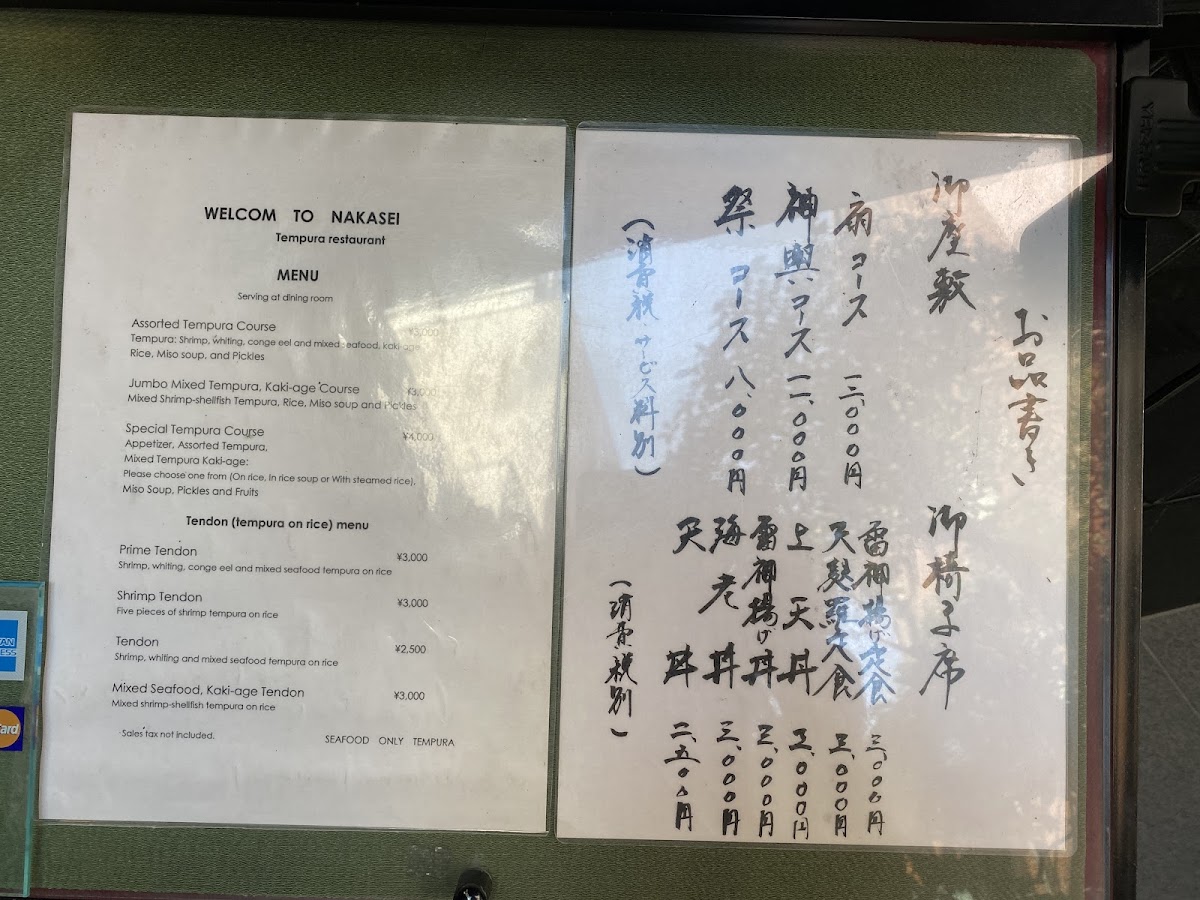 WELCOM TO NAKASEI
Tempura restaurant
MENU
Serving at dining room
Assorted Tempura Course ¥3,000
Tempura: Shrimp, whiting, conge eel and mixed seafood, kaki-age
Rice, Miso soup, and Pickles
Jumbo Mixed Tempura, Kaki-age Course ¥3,000
Mixed Shrimp-shellfish Tempura, Rice, Miso soup and Pickles
Special Tempura Course ¥4,000
Appetizer, Assorted Tempura,
Mixed Tempura Kaki-age:
Please choose one from (On rice, In rice soup or With steamed rice),
Miso Soup, Pickles and Fruits
Tendon (tempura on rice) menu
Prime Tendon ¥3,000
Shrimp, whiting, conge eel and mixed seafood tempura on rice
Shrimp Tendon ¥3,000
Five pieces of shrimp tempura on rice
Tendon ¥2,500
Shrimp, whiting and mixed seafood tempura on rice
Mixed Seafood, Kaki-age Tendon ¥3,000
Mixed shrimp-shellfish tempura on rice
Sales tax not included. SEAFOOD ONLY TEMPURA
お品書き
御座敷
扇コース 一三、〇〇〇円
神輿コース 一一、〇〇〇円
祭コース 八、〇〇〇円
(消費税・サービス料別)
御椅子席
雷神揚げ定食 三、〇〇〇円
天麩羅定食 三、〇〇〇円
上天丼 三、〇〇〇円
雷神揚げ丼 三、〇〇〇円
海老丼 三、〇〇〇円
天丼 二、五〇〇円
(消費税別)